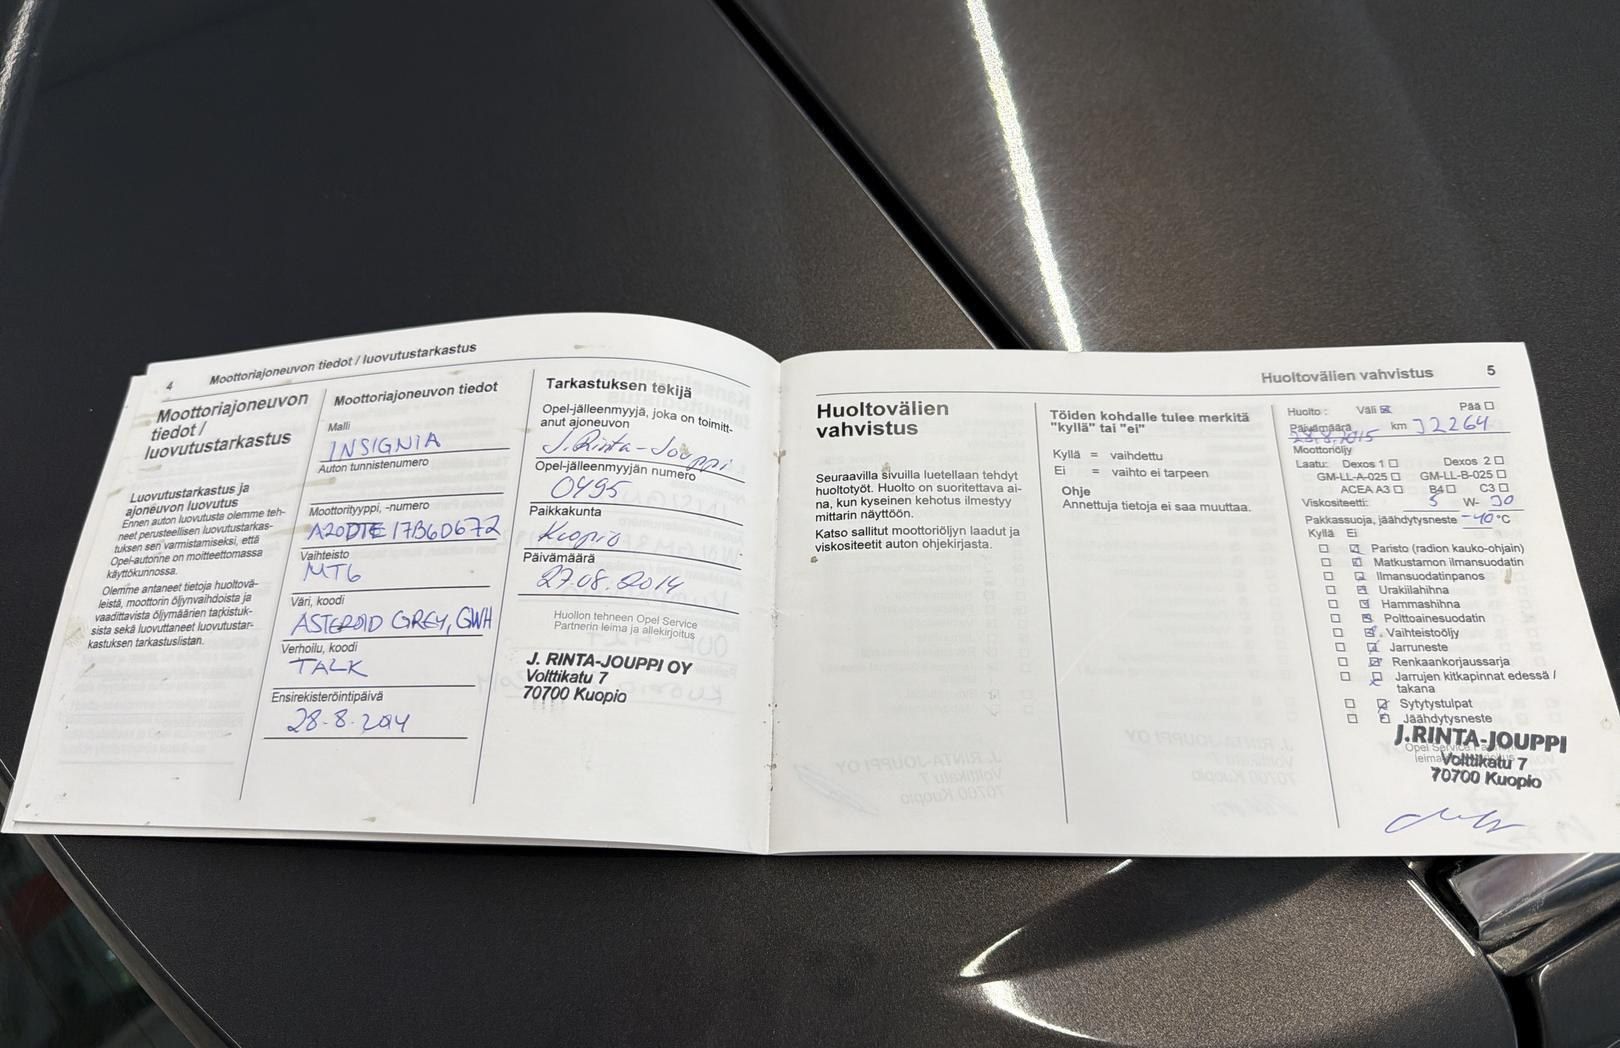 4
Moottoriajoneuvon tiedot / luovutustarkastus
Moottoriajoneuvon
tiedot /
luovutustarkastus
Luovutustarkastus ja
ajoneuvon luovutus
Ennen auton luovutusta olemme teh-
neet perusteellisen luovutustarkas-
tuksen sen varmistamiseksi, että
Opel-autonne on moitteettomassa
käyttökunnossa.
Olemme antaneet tietoja huoltovä-
leistä, moottorin öljynvaihdoista ja
vaadittavista öljymäärien tarkistuk-
sista sekä luovuttaneet luovutustar-
kastuksen tarkastuslistan.
Moottoriajoneuvon tiedot
Malli
INSIGNIA
Auton tunnistenumero
Moottorityyppi, -numero
A20DTE 17B60672
Vaihteisto
MT6
Väri, koodi
ASTEROID GREY, GWH
Verhoilu, koodi
TALK
Ensirekisteröintipäivä
28.8.2014
Tarkastuksen tekijä
Opel-jälleenmyyjä, joka on toimitt-
anut ajoneuvon
J. Rinta-Jouppi
Opel-jälleenmyyjän numero
0495
Paikkakunta
Kuopio
Päivämäärä
27.08.2014
Huollon tehneen Opel Service
Partnerin leima ja allekirjoitus
J. RINTA-JOUPPI OY
Volttikatu 7
70700 Kuopio
Huoltovälien vahvistus
5
Huoltovälien
vahvistus
Seuraavilla sivuilla luetellaan tehdyt
huoltotyöt. Huolto on suoritettava ai-
na, kun kyseinen kehotus ilmestyy
mittarin näyttöön.
Katso sallitut moottoriöljyn laadut ja
viskositeetit auton ohjekirjasta.
Töiden kohdalle tulee merkitä
"kyllä" tai "ei"
Kyllä = vaihdettu
Ei = vaihto ei tarpeen
Ohje
Annettuja tietoja ei saa muuttaa.
Huolto : Väli Pää
Päivämäärä km 32264
28.8.2015
Moottoriöljy
Laatu: Dexos 1 Dexos 2
GM-LL-A-025 GM-LL-B-025
ACEA A3 B4 C3
Viskositeetti: 5 W- 30
Pakkassuoja, jäähdytysneste -40 °C
Kyllä Ei
Paristo (radion kauko-ohjain)
Matkustamon ilmansuodatin
Ilmansuodatinpanos
Urakiilahihna
Hammashihna
Polttoainesuodatin
Vaihteistoöljy
Jarruneste
Renkaankorjaussarja
Jarrujen kitkapinnat edessä /
takana
Sytytystulpat
Jäähdytysneste
J.RINTA-JOUPPI
Volttikatu 7
70700 Kuopio